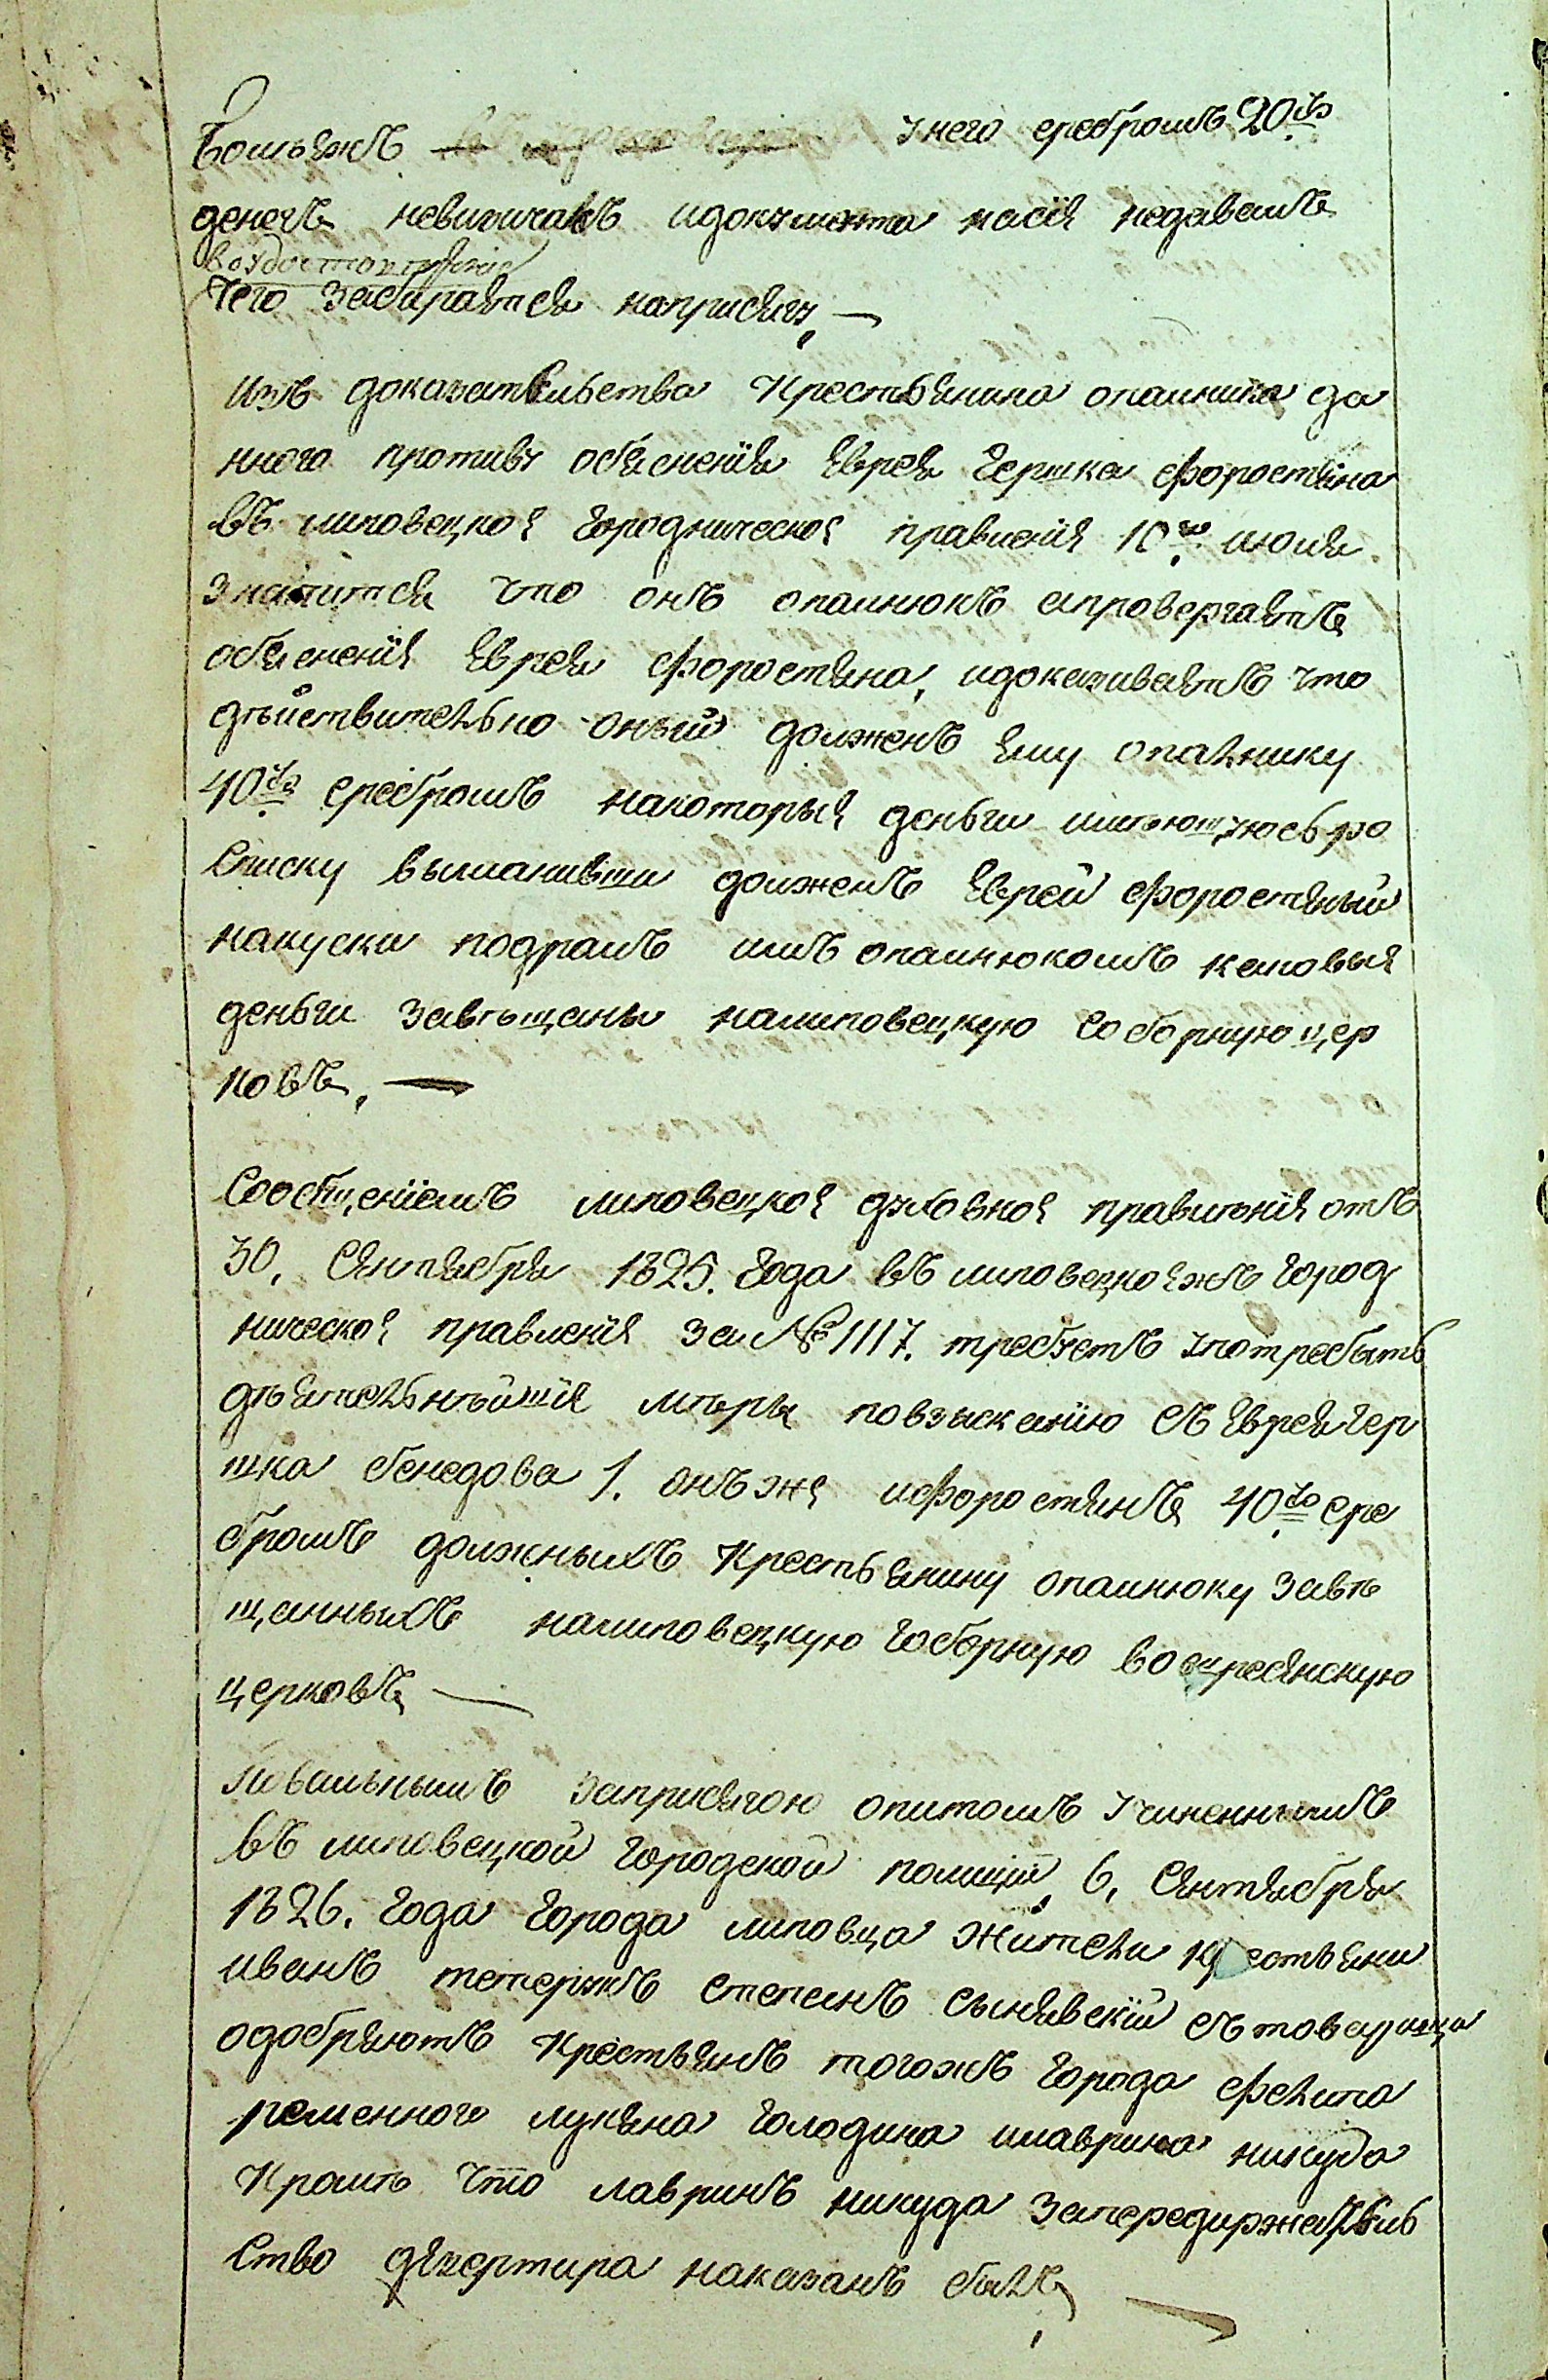 Большежъ унего сребромъ 20 ру
денегъ невипичалъ идокумента насїе недавалъ
воудостоверение
чего забираѣтся наприсягу —
Изъ доказательства Крестьянина опалника да
нного противу объясненїя Еврея Гершка Форостяна
въ липовецкое городническое правленїе 10го июля
значится что онъ опалнюкъ опровергаетъ
объясненїе Еврея Форостяна, идоказиваетъ что
дѣйствительно оный долженъ Ему опалнику
40 ру сребромъ накоторые деньги имѣющуюсь ро
списку выманивши долженъ Еврей Форостяный
накуски подралъ имъ опалнюкомъ каковые
деньги завѣщаны налиповецкую соборную цер
ковъ. —
Сообщенїемъ липовецкое духовное правленїе отъ
30. Сентября 1825. года въ липовецкоежъ город
ническое правленїе за № 1117. требуетъ употребыть
дѣятельнѣйшїе мѣры повзысканїю съ Еврея Гер
шка бенедова 1. онъ же иФоростянъ 40 ру сре
бромъ должныхъ Крестьянину опалнюку завѣ
щанныхъ налиповецкую соборную воскресенскую
церковъ —
Повальнымъ заприсягою опитомъ учиненнымъ
въ липовецкой городской полицїи 6. Сентября
1826. года города липовца жители крестьяни
иванъ тетерукъ степанъ сынявскїй съ товарища
одобряютъ Крестьянъ тогожъ города Филипа
ременного лукяна голодина илаврина никуда
Кромѣ что лавринъ никуда запередиржатель
ство дезертира наказанъ былъ —